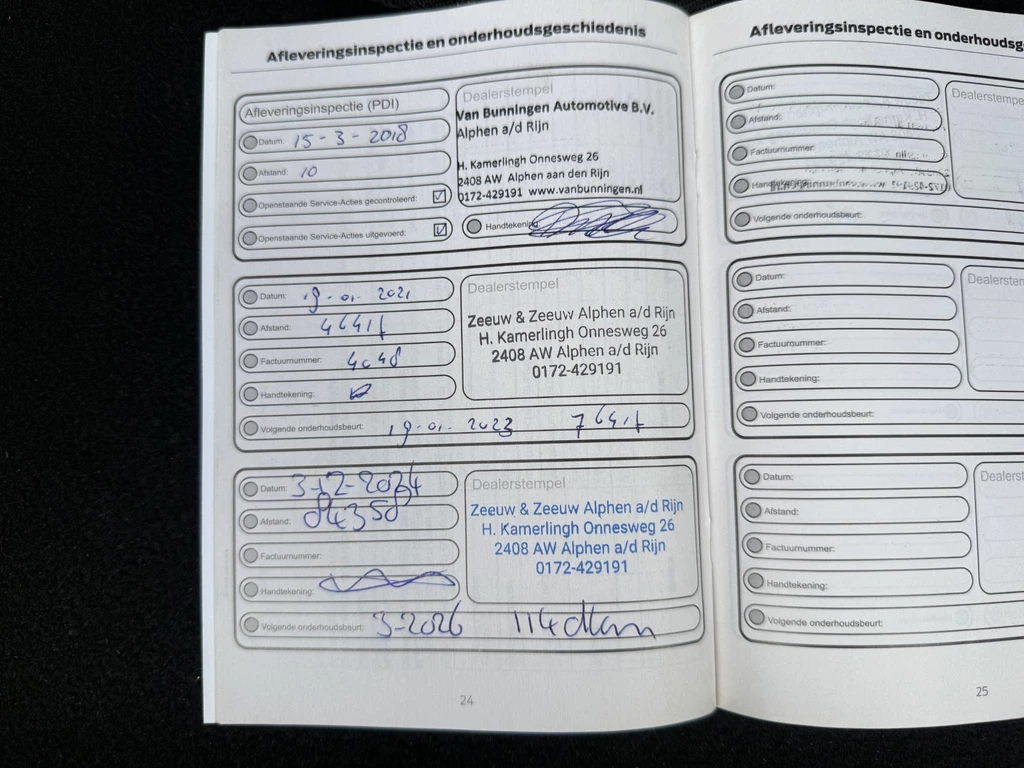 Afleveringsinspectie en onderhoudsgeschiedenis
Afleveringsinspectie (PDI)
Datum: 15-3-2018
Afstand: 10
Openstaande Service-Acties gecontroleerd:
Openstaande Service-Acties uitgevoerd:
Dealerstempel
Van Bunningen Automotive B.V.
Alphen a/d Rijn
H. Kamerlingh Onnesweg 26
2408 AW Alphen aan den Rijn
0172-429191 www.vanbunningen.nl
Handtekening:
Datum: 19-01-2021
Afstand:
Factuurnummer: 4048
Handtekening:
Dealerstempel
Zeeuw & Zeeuw Alphen a/d Rijn
H. Kamerlingh Onnesweg 26
2408 AW Alphen a/d Rijn
0172-429191
Volgende onderhoudsbeurt: 19-01-2023
Datum: 3-12-2024
Afstand: 84358
Factuurnummer:
Handtekening:
Dealerstempel
Zeeuw & Zeeuw Alphen a/d Rijn
H. Kamerlingh Onnesweg 26
2408 AW Alphen a/d Rijn
0172-429191
Volgende onderhoudsbeurt: 3-2026 114dkm
24
Afleveringsinspectie en onderhoudsg
Datum:
Afstand:
Factuurnummer:
Handtekening:
Volgende onderhoudsbeurt:
Dealerstempe
Datum:
Afstand:
Factuurnummer:
Handtekening:
Volgende onderhoudsbeurt:
Dealerstem
Datum:
Afstand:
Factuurnummer:
Handtekening:
Volgende onderhoudsbeurt:
Dealerst
25